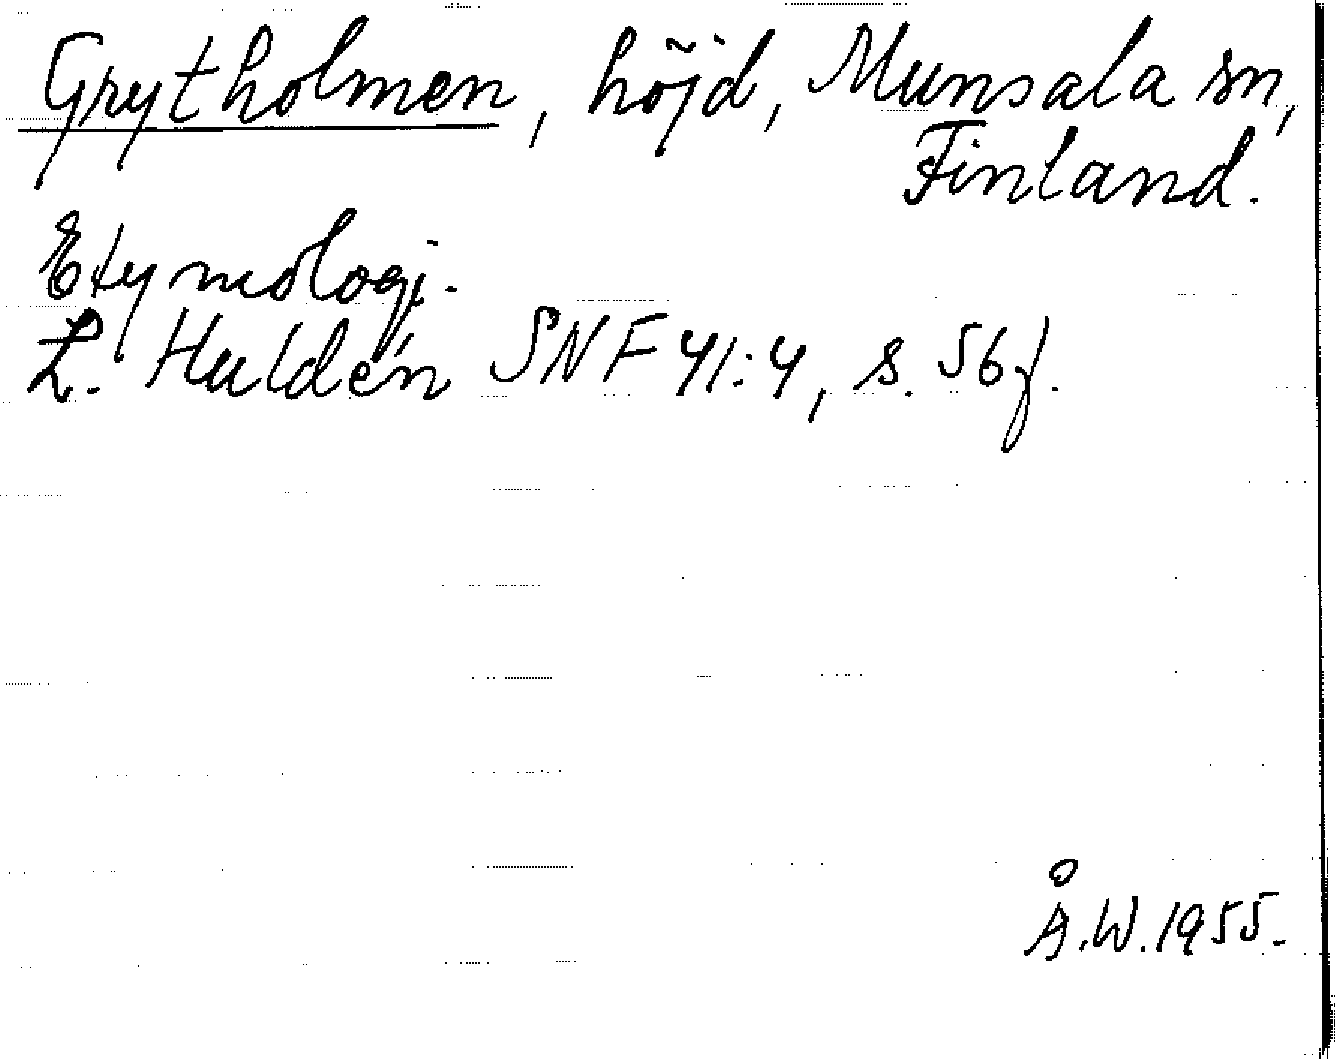 Grytholmen, höjd, Munsala sn,
Finland.
Etymologi.
L. Huldén SNF 41:4, s. 56f.
Å.W. 1955.